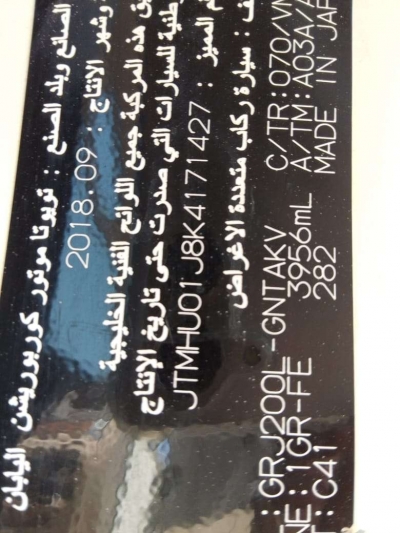 الصانع وبلد الصنع : تويوتا موتور كوربوريشن اليابان
وشهر الانتاج : 2018.09
هذه المركبة جميع اللوائح الفنية الخليجية
للسيارات التي صدرت حتى تاريخ الإنتاج
المميز : JTMHU01J8K4171427
: سيارة ركاب متعددة الاغراض
: GRJ200L-GNTAKV C/TR:070/VN
NE : 1GR-FE 3956mL A/TM:A03A/A
: C41 282 MADE IN JAP